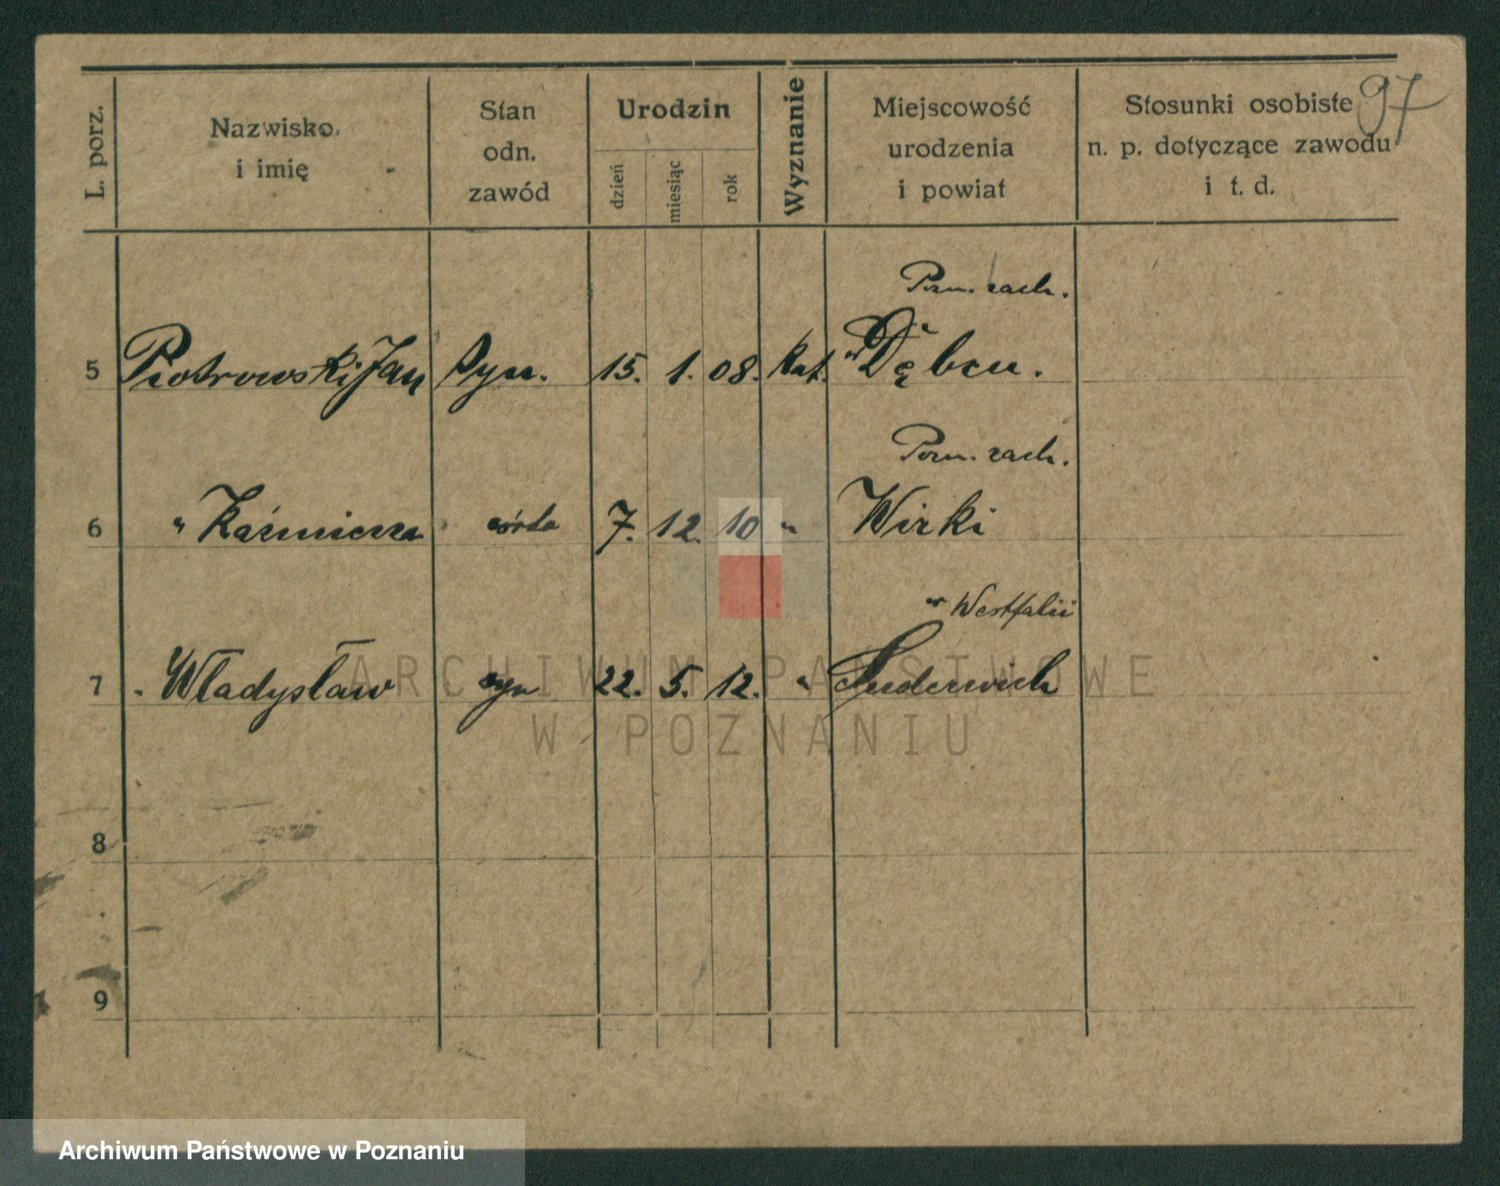 97
L. porz.
Nazwisko
i imię
Stan
odn.
zawód
Urodzin
dzień
miesiąc
rok
Wyznanie
Miejscowość
urodzenia
i powiat
Stosunki osobiste
n. p. dotyczące zawodu
i t. d.
Pozn. zach.
5 Piotrowski Jan syn. 15. 1. 08. Kat. w Dębcu.
Pozn. zach.
6 " Kaźmiera córka 7. 12. 10 " Wirki
w Westfalii
7 " Władysław syn 22. 5. 12. " Suderwich
ARCHIWUM PAŃSTWOWE
W POZNANIU
8
9
Archiwum Państwowe w Poznaniu